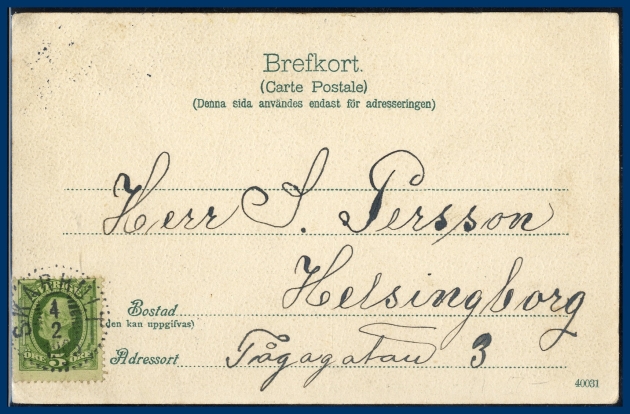 Brefkort.
(Carte Postale)
(Denna sida användes endast för adresseringen)
Herr S. Persson
Helsingborg
Bostad
(den kan uppgifvas)
Tågagatan 3
Adressort
SKARHULT
4
2
5
40031